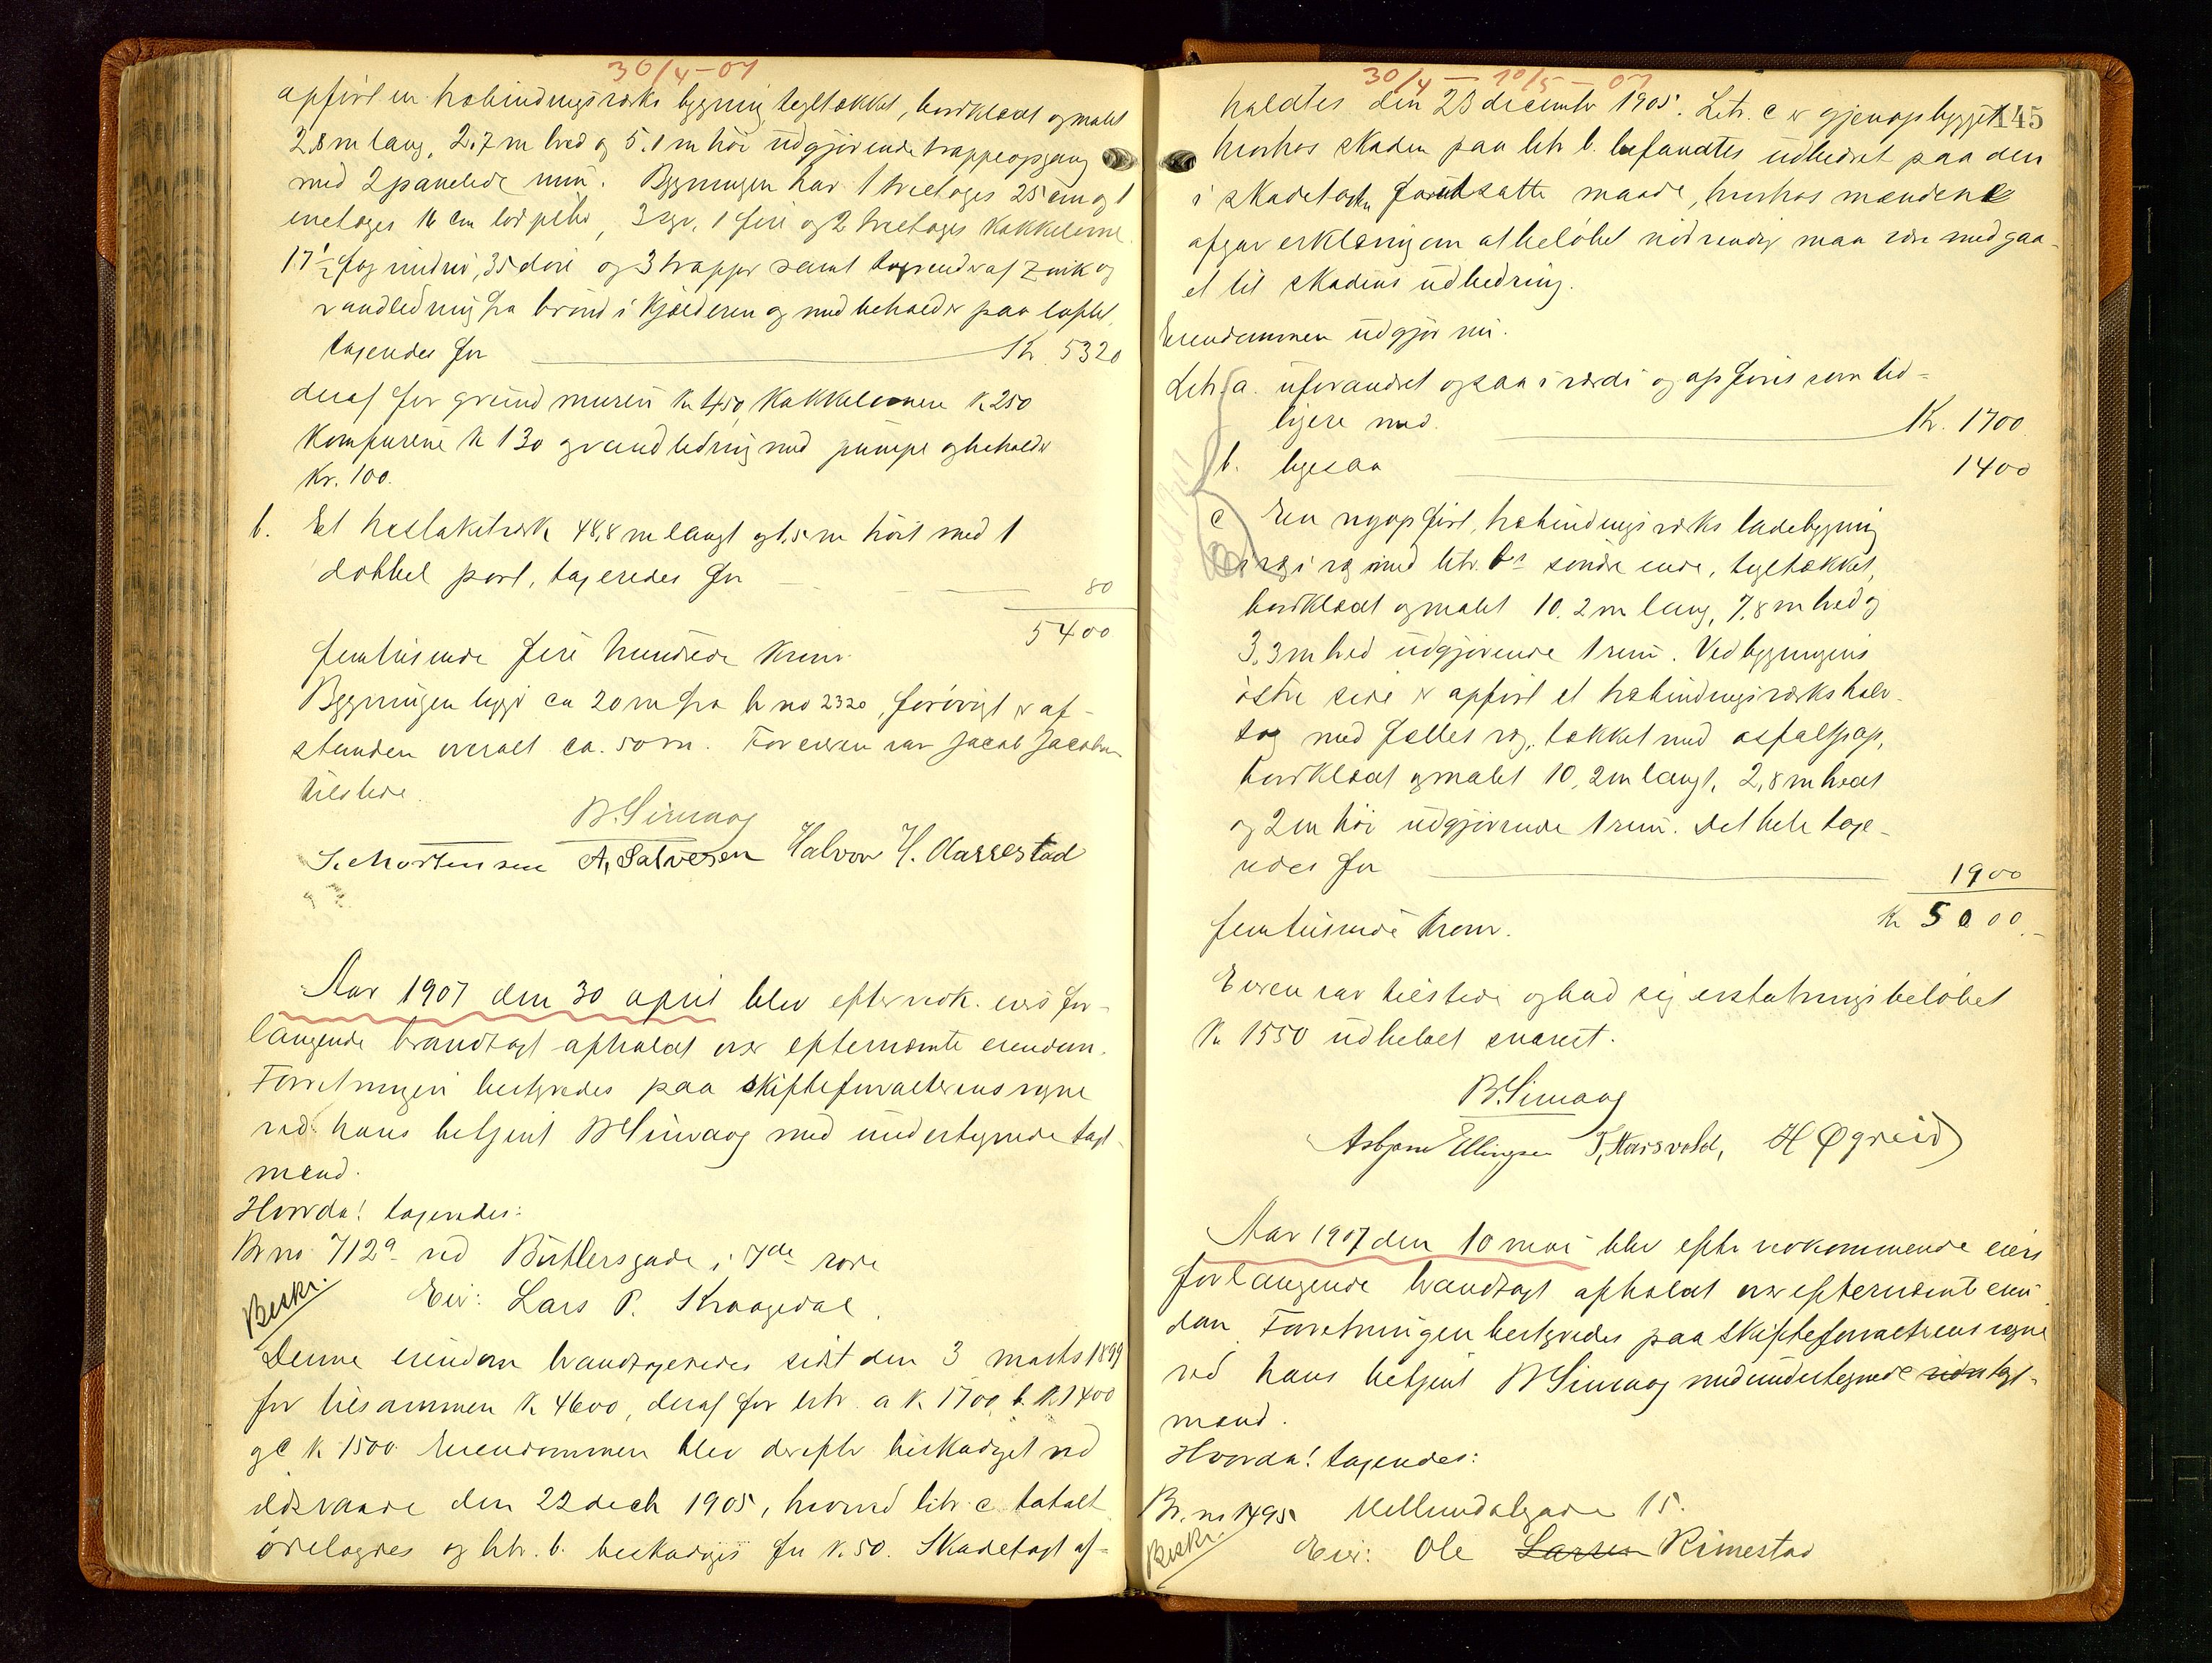 30/4-07
opført en træbindingsværks bygning tegltækket, bordklædt og malet
2,8 m lang, 2,7 m bred og 5,1 m høi udgjørende trappeopgang
med 2 panelede rum. Bygningen har 1 treetages 25 cm og 1
enetages 16 cm lodpibe, 3 kgr., 1 fire og 2 treetages kakkelovne
17½ fag vinduer, 35 døre og 3 trapper samt tagrender af zink og
vandledning fra brønd i kjælderen og med beholder paa loftet,
taxeredes for Kr. 5320
deraf for grundmuren Kr 450 Kakkelovnene Kr 250
Komfurene Kr 130 og vandledning med pumpe og beholder
Kr. 100.
b. Et 48,8 m langt og 1,5 m høit med 1
dobbel port, taxeredes for 80
5400
femtusende fire hundrede Kroner
Bygningen ligger ca 20 m fra br no 2320, forøvrigt er af-
standen overalt ca. 50 m. For eieren var Jacob Jacobsen
tilstede.
B. Sirevaag
S. Mortensen A. Salvesen Halvor H. Aarrestad
Aar 1907 den 30 april blev efter vedk. eiers for-
langende brandtaxt afholdt over efternævnte eiendom.
Forretningen bestyredes paa skifteforvalterens vegne
ved hans betjent B Sirevaag med undertegnede taxt-
mænd.
Hvorda! taxeredes:
Br no 712a ved Butlersgade i 7de rode
Beskr. Eier: Lars P. Kraagedal.
Denne eiendom brandtaxeredes sidst den 3 marts 1899
for tilsammen Kr 4600, deraf for litr. a Kr 1700, b. Kr 1400
og c Kr 1500. Eiendommen blev derefter beskadiget ved
ildsvaade den 22 decbr 1905, hvorved litr. c totalt
ødelagdes og litr. b. beskadiges for Kr. 50. Skadetaxt af-
30/4 - 10/5 - 07
145
holdtes den 23 december 1905. Litr. c er gjenopbygget
hvorhos skaden paa litr b. befandtes udbedret paa den
i skadetaxten forudsatte maade, hvorhos mændene
afgav erklæring om at beløbet nødvendig maa være medgaa-
et til skadens udbedring.
Eiendommen udgjør nu.
Litr. a. uforandret ogsaa i værdi og opføres som tid-
ligere med. Kr. 1700
b. ligesaa 1400
c En nyopført, træbindingsværks ladebygning
væg i væg med litr. bs søndre ende, tegltækket,
bordklædt og malet 10,2 m lang, 7,8 m bred og
3,3 m bred udgjørende 1 rum. Ved bygningens
østre side er opført et træbindingsværks halv-
tag med fælles væg, tækket med asfaltpap,
bordklædt og malet 10,2 m langt, 2,8 m bredt
og 2 m høi udgjørende 1 rum. Det hele taxe-
redes for 1900
femtusinde Kroner. Kr 5000.-
Eieren var tilstede og bad sig erstatningsbeløbet
Kr 1550 udbetalt snarest.
B. Sirevaag
Asbjørn Ellingsen T. Haarsvold, H Øgreid
Aar 1907 den 10 mai blev efter vedkommende eiers
forlangende brandtaxt afholdt over efternævnte eien-
dom. Forretningen bestyredes paa skifteforvalterens vegne
ved hans betjent B Sirevaag med undertegnede taxt-
mænd.
Hvorda! taxeredes:
Br. no 1495 Mellumdalsgade 15.
Beskr. Eier: Ole Larsen Rimestad